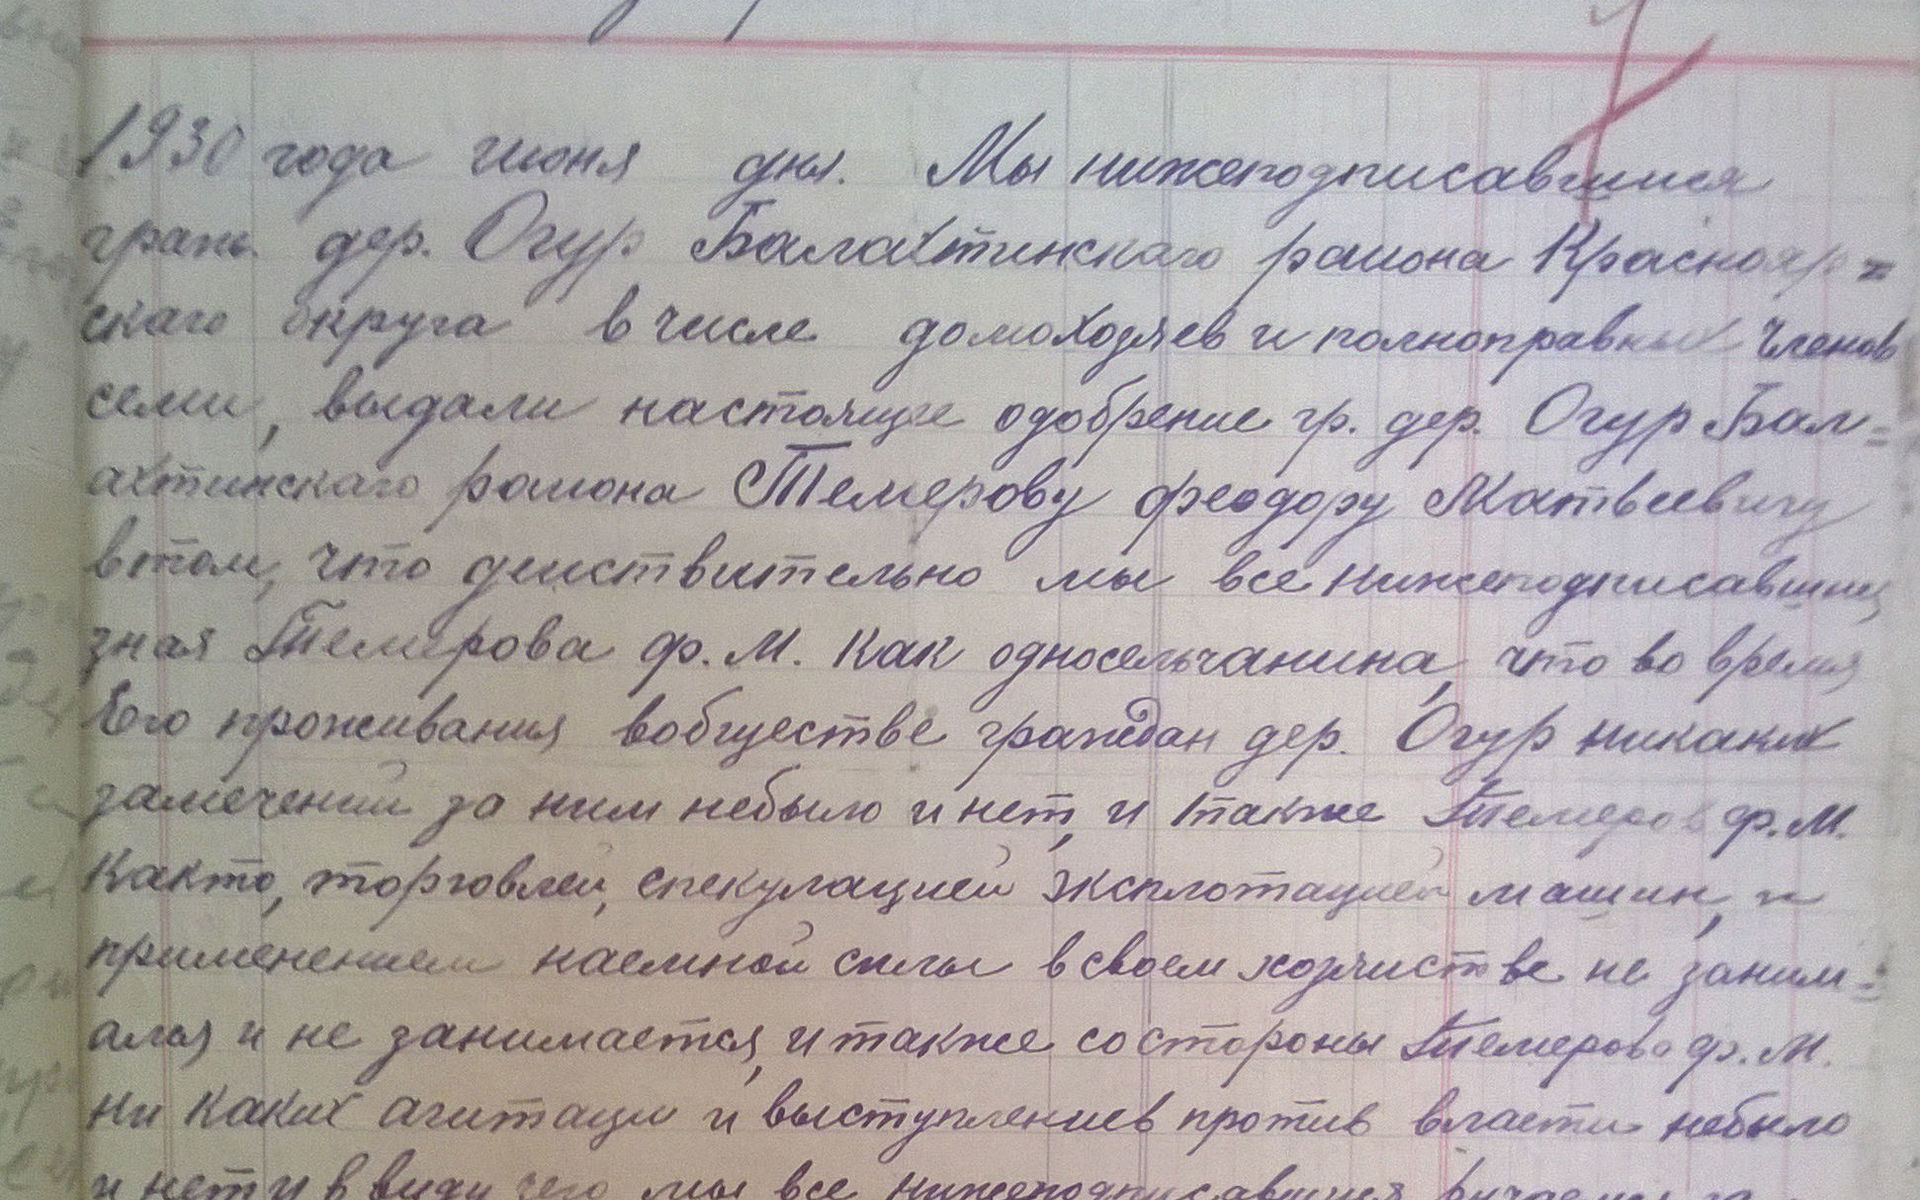 1930 года июня дня. Мы нижеподписавшиеся
граж. дер. Огур Балахтинскаго района Краснояр=
скаго округа в числе домохозяев и полноправных членов
семи, выдали настоящее одобрение гр. дер. Огур Бал=
ахтинскаго района Темерову Феодору Матвеевичу
втом, что деиствительно мы все нижеподписавшиеся
зная Темерова Ф. М. как односельчанина, что во время
Его проживания вобществе граждан дер. Огур никаких
замечений за ним небыло и нет, и также Темеров Ф. М.
както, торговлей, спекуляцией эксплотацией машин, и
применением наемной силы в своем хозяистве не заним=
ался и не занимается, и также со стороны Темерова Ф. М.
ни каких агитаци и выступлениев против власти небыло
и нет и в виду чего мы все нижеподписавшиеся ручаемся за